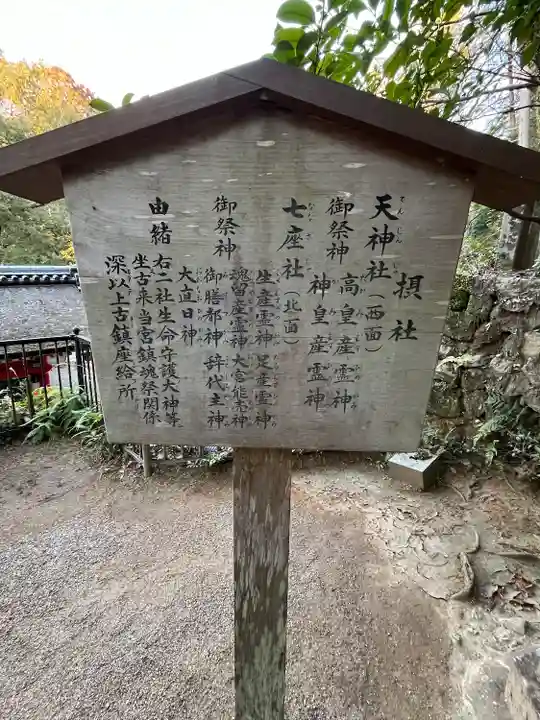 摂社
天神社（西面）
てんじんしゃ
御祭神 高皇産霊神
神皇産霊神
七座社（北面）
ななざしゃ
御祭神 生産霊神 足産霊神
魂留産霊神 大宮能売神
御膳都神 辞代主神
大直日神
由緒 右二社生命守護大神等
坐古来当宮鎮魂祭関係
深以上古鎮座給所